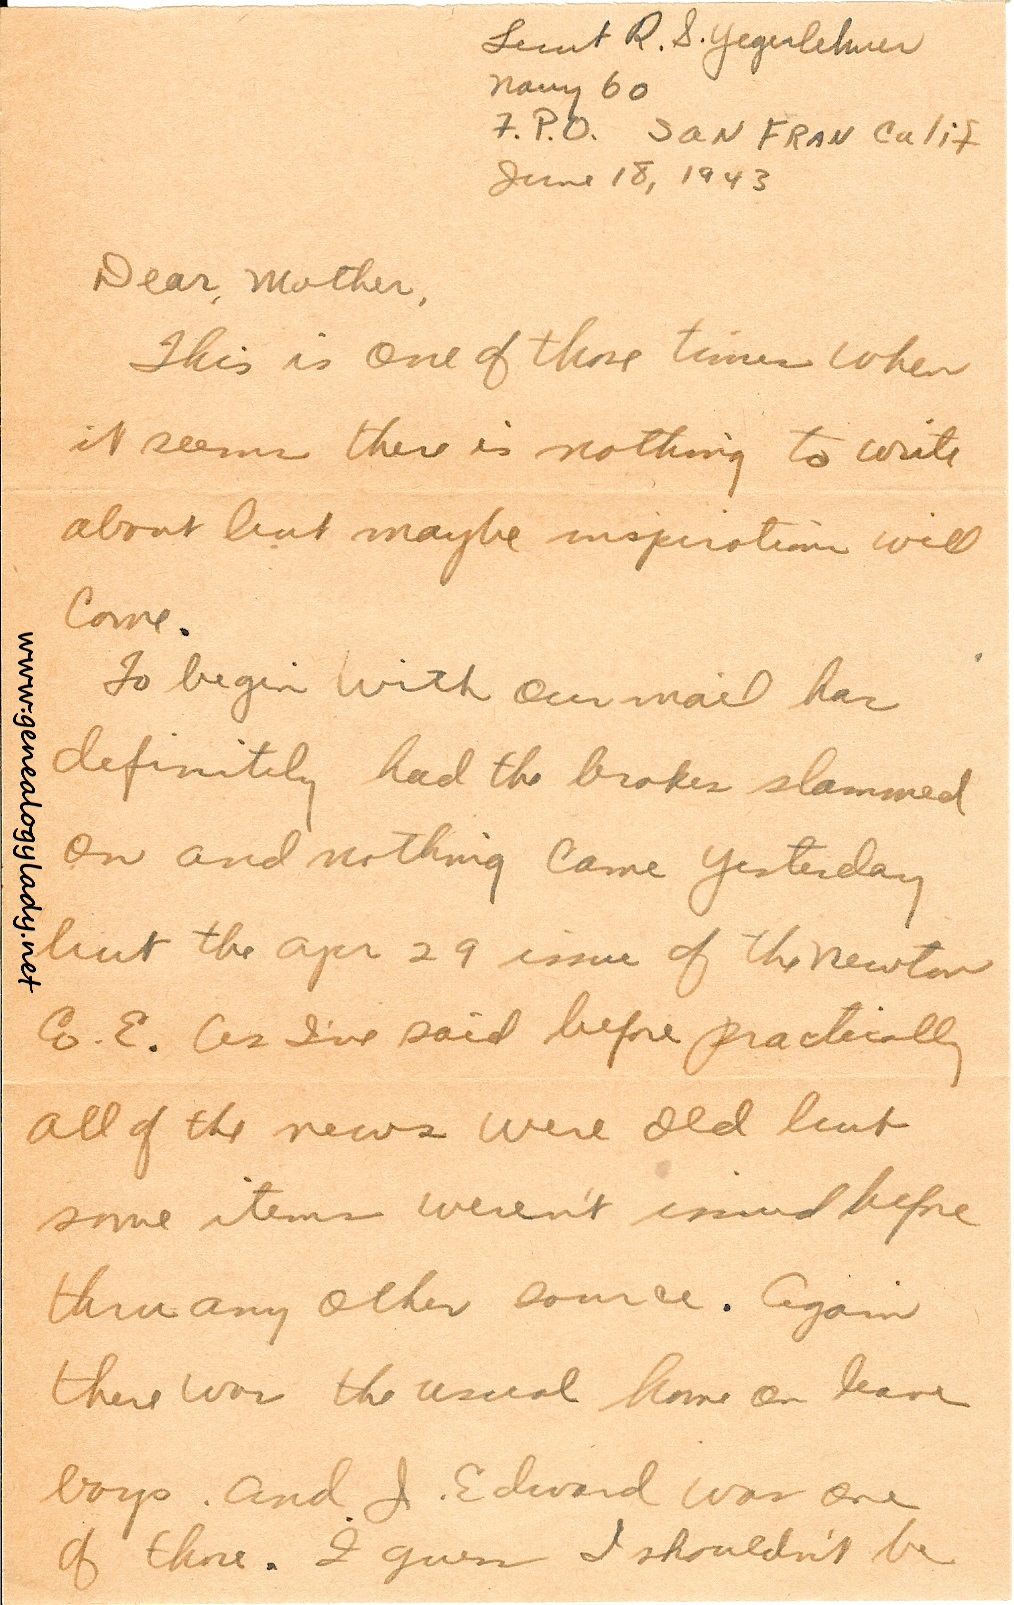 Lieut R. S. Yegerlehner
Navy 60
F.P.O. SAN FRAN Calif
June 18, 1943
Dear, Mother,
This is one of those times when
it seems there is nothing to write
about but maybe inspiration will
come.
To begin with our mail has
definitely had the brakes slammed
on and nothing came yesterday
but the Apr 29 issue of the Newton
Co. E. As I've said before practically
all of the news were old but
some items weren't issued before
thru any other source. Again
there was the usual home on leave
boys. and J. Edward was one
of those. I guess I shouldn't be
www.genealogylady.net